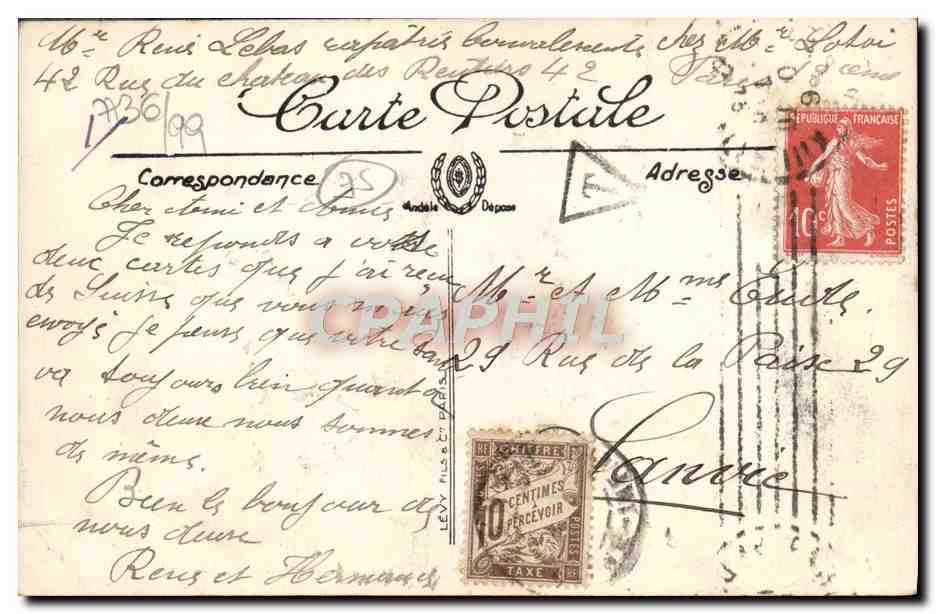 Mr René Lebas rapatrié convalescents chez Mr
42 Rue du chateau des Rentiers 42 Paris
A36/99
Carte Postale
Correspondance
75
Adresse
T
Andéle Dépose
REPUBLIQUE FRANÇAISE
10c
POSTES
Cher Ami et Amie
Je reponds a votre
deux cartes que j'ai reçu
de Suisse que vous m'avez
envoyé je pense que votre santé
va toujours bien quant a
nous deux nous sommes
de même.
Bien le bonjour de
nous deux
René et Hermance
Mr et Mme
29 Rue de la Paix 29
CPAPHIL
LÉVY FILS & Cie PARIS
CHIFFRE
10 CENTIMES
A PERCEVOIR
POSTES
TAXE